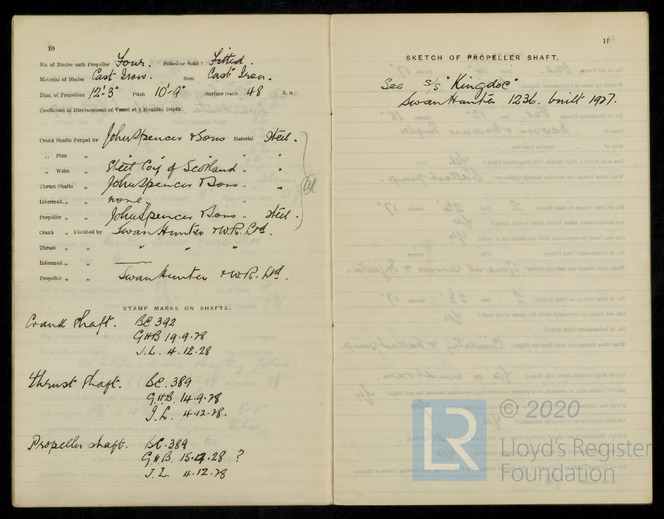 10
No. of Blades each Propeller Four. Fitted or Solid? Fitted.
Material of Blades Cast Iron. Boss Cast Iron.
Diam. of Propellers 12'-3" Pitch 10'-9" Surface (each 48 S. ft.)
Coefficient of Displacement of Vessel at ¾ Moulded Depth
Crank Shafts Forged by John Spencer & Sons Material Steel.
" Pins " " "
" Webs " Steel Coy of Scotland " "
Thrust Shafts " John Spencer & Sons " "
Intermd. " " none " "
Propeller " " John Spencer & Sons " Steel.
Crank " Finished by Swan Hunter & W.R. Ltd.
Thrust " " " " "
Intermd. " "
Propeller " " Swan Hunter & W.R. Ltd.
STAMP MARKS ON SHAFTS.
Crank shaft. BC 392
GHB 19.9.28
J.L. 4.12.28
Thrust shaft. BC. 389
G.H.B 14.9.28
J.L. 4.12.28.
Propeller shaft. BC. 389
G.H.B. 15.9.28 ?
J.L. 4.12.28
11
SKETCH OF PROPELLER SHAFT.
See S/S "Kingdoc"
Swan Hunter 1236. built 1927.
LR © 2020
Lloyd's Register
Foundation